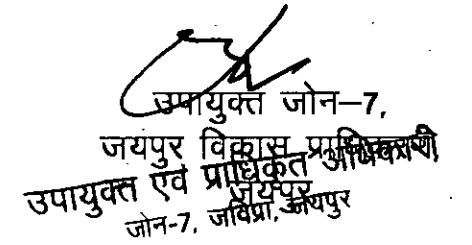 उपायुक्त जोन–7,
जयपुर विकास प्राधिकरण,
जयपुर
उपायुक्त एवं प्राधिकृत अधिकारी
जोन-7, जविप्रा, जयपुर